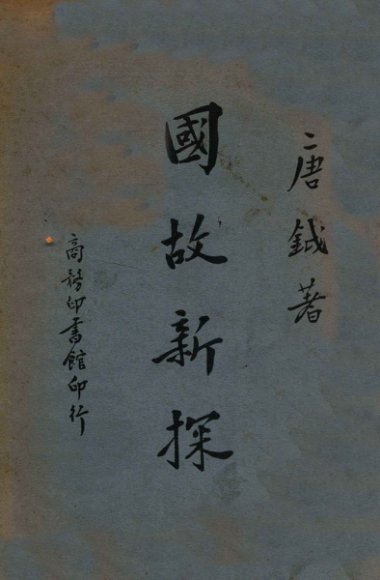 唐鉞著
國故新探
商務印書館印行